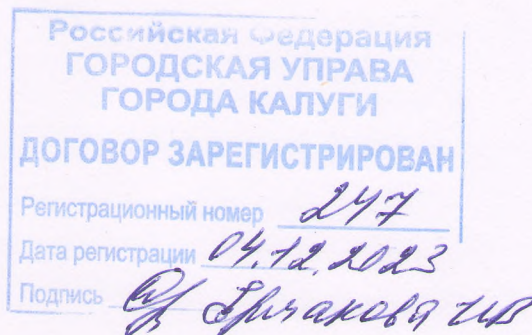 Российская Федерация
ГОРОДСКАЯ УПРАВА
ГОРОДА КАЛУГИ
ДОГОВОР ЗАРЕГИСТРИРОВАН
Регистрационный номер 247
Дата регистрации 04.12.2023
Подпись